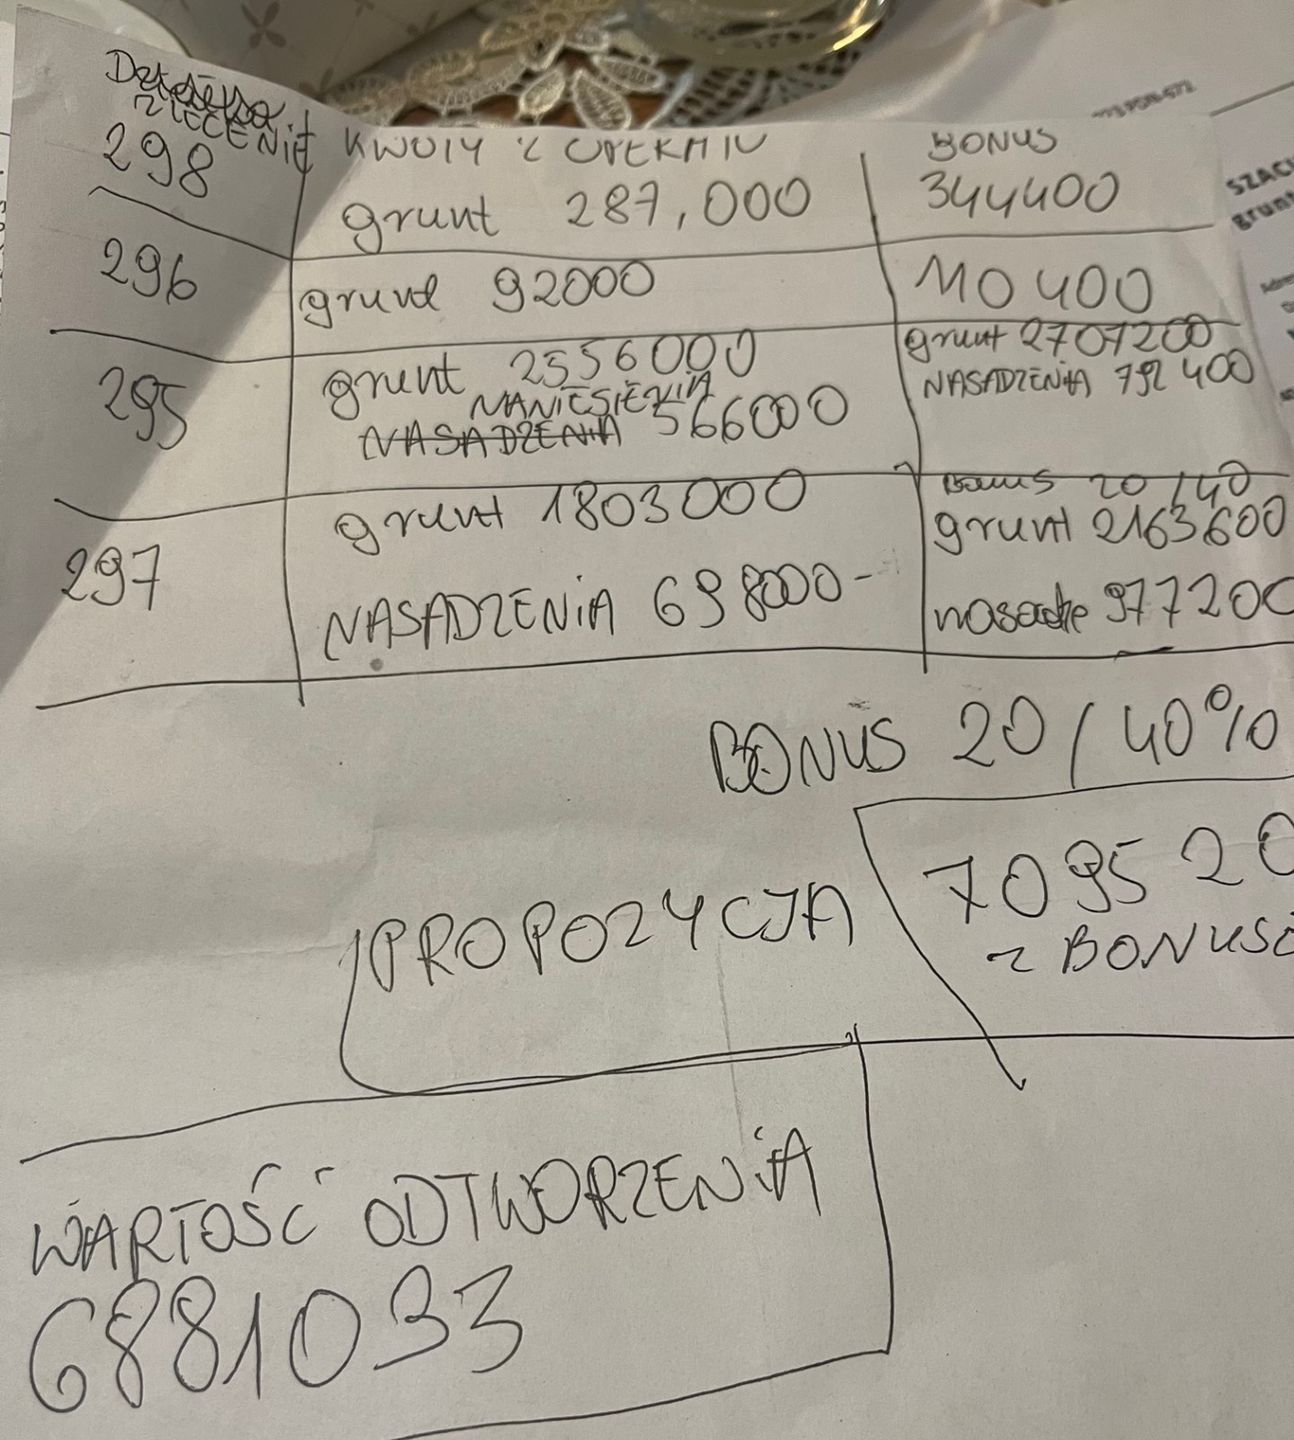 ZLECENIE KWOTY Z OPERATU BONUS
298 grunt 287,000 344400
296 grunt 92000 110 400
295 grunt 2556000 grunt 2707200
NANIESIENIA NASADZENIA 792 400
NASADZENIA 566000
297 grunt 1803000 Bonus 20/40
grunt 2163600
NASADZENIA 698000- nasadze 977200
BONUS 20/40%
PROPOZYCJA 709520
Z BONUSE
WARTOŚĆ ODTWORZENIA
6881033
SZAC
grunt